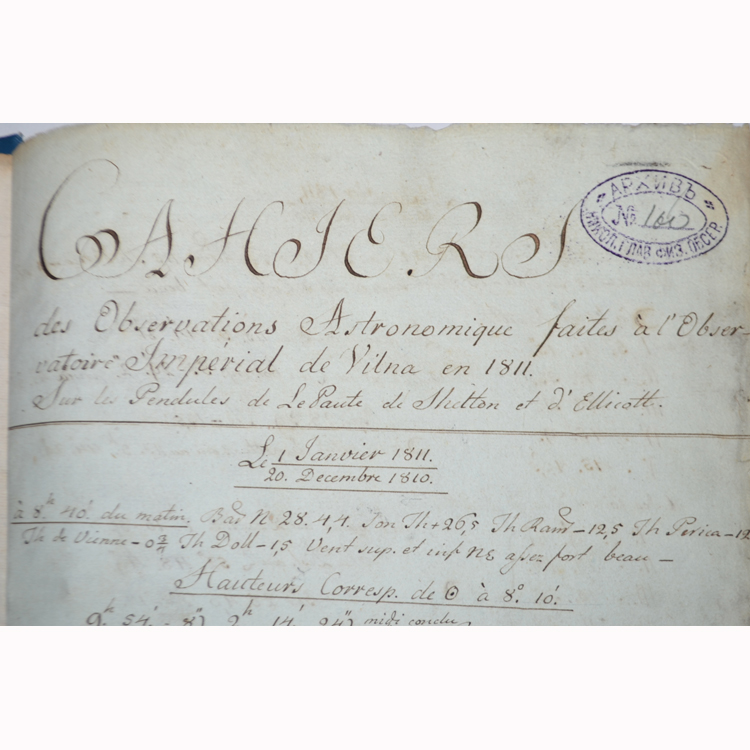 CAHIERS
des Observations Astronomique faites à l'Obser-
vatoire Impérial de Vilna en 1811.
Sur les Pendules de LePaute de Shelton et d'Ellicott.
Le 1 Janvier 1811.
20. Decembre 1810.
à 8h 40'. du matin. Bar N 28.4,4. Son Th+26,5 Th Ram–12,5 Th Perica–12
Th de Vienne–0 Th Doll–1,5 Vent sup. et inf NE assez fort beau–
Hauteurs Corresp. de ⊙ à 8°. 10'.
9h 54'. 8" 2h 14' 24" midi conclu
АРХИВЪ
№ 160
НИКОЛ. ГЛАВ. ФИЗ. ОБСЕР.